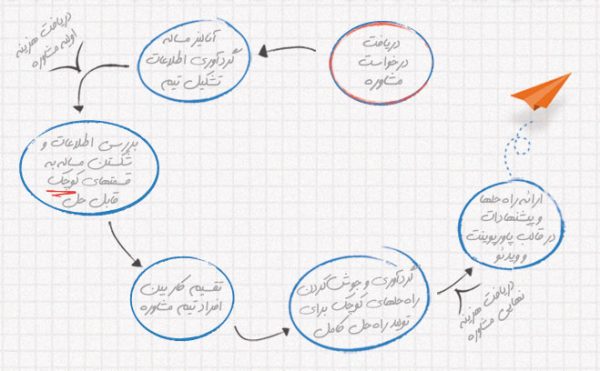 دریافت
درخواست
مشاوره
آنالیز مساله
گردآوری اطلاعات
تشکیل تیم
دریافت هزینه
اولیه مشاوره
بررسی اطلاعات و
شکستن مساله به
قسمتهای کوچک
قابل حل
تقسیم کار بین
افراد تیم مشاوره
گردآوری و جوش کردن
راه حلهای کوچک برای
تولید راه حل کامل
دریافت هزینه
نهایی مشاوره
ارائه راه حلها
و پیشنهادات
در قالب پاورپوینت
و ویدئو